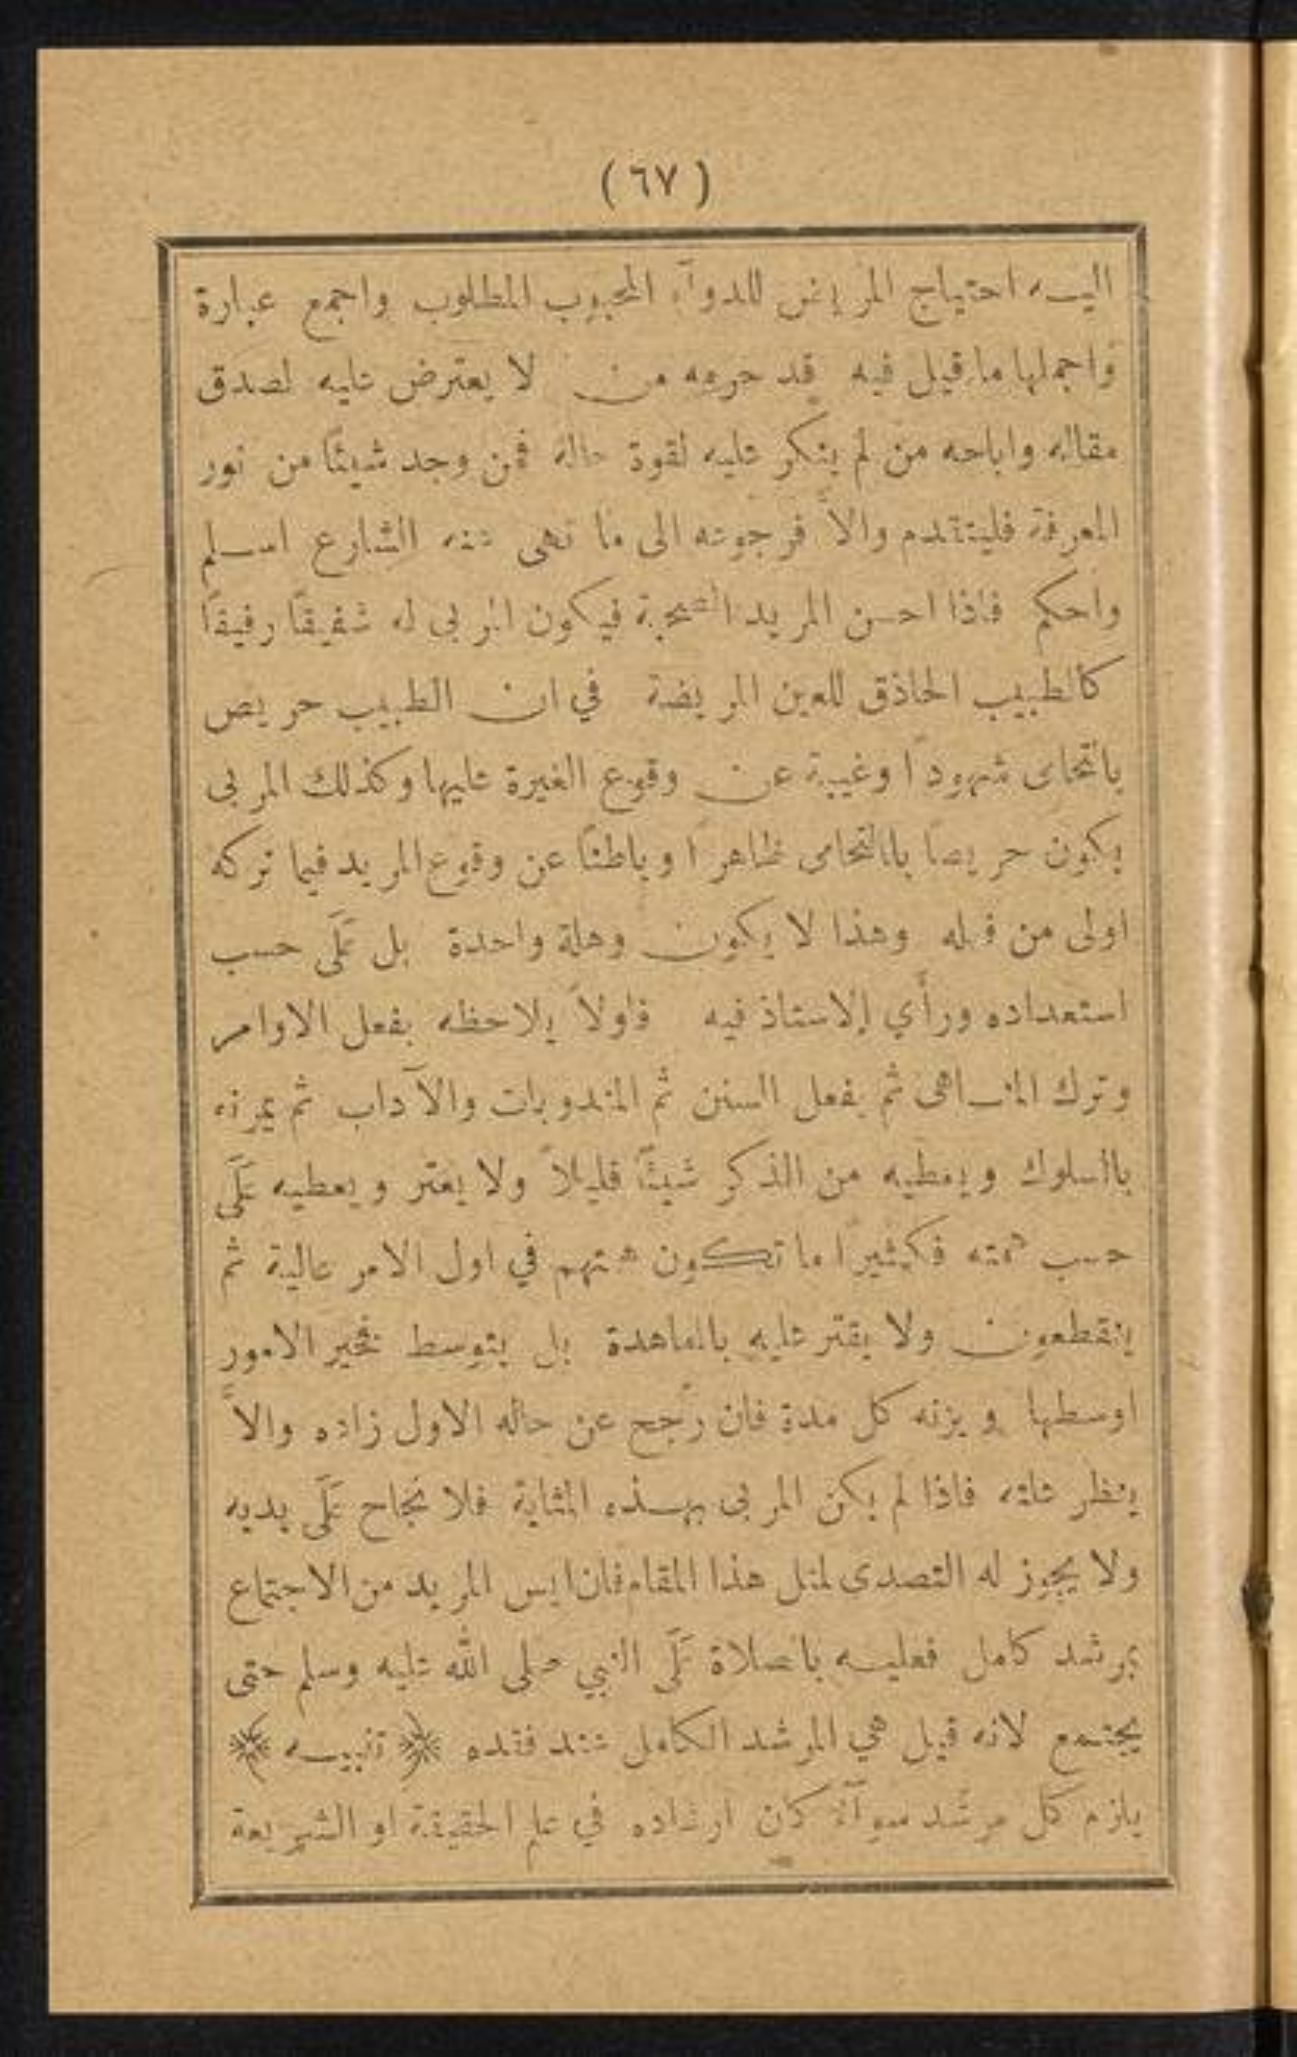 (٦٧)
اليه احتياج المريض للدوآء المحبوب المطلوب واجمع عبارة
واجملها ما قيل فيه قد حرمه من لا يعترض عليه لصدق
مقاله واباحه من لم ينكر عليه لقوة حاله فمن وجد شيئًا من نور
المعرفة فليتقدم والاَّ فرجوعه الى ما نهى عنه الشارع اسلم
واحكم فاذا احسن المريد الصحبة فيكون المربى له شفيقًا رفيقًا
كالطبيب الحاذق للعين المريضة في ان الطبيب حريص
بالتحامى شهودًا وغيبة عن وقوع الغيرة عليها وكذلك المربى
يكون حريصًا بالتحامى ظاهرًا وباطنًا عن وقوع المريد فيما تركه
اولى من فعله وهذا لا يكون وهلة واحدة بل عَلَى حسب
استعداده ورأي الاستاذ فيه فاولاً يلاحظه بفعل الاوامر
وترك المناهى ثم بفعل السنن ثم المندوبات والآداب ثم يمرنه
بالسلوك ويعطيه من الذكر شيئًا قليلاً ولا يغتر ويعطيه عَلَى
حسب همته فكثيرًا ما تكون همتهم في اول الامر عالية ثم
ينقطعون ولا يقتر عليه بالمعاهدة بل يتوسط فخير الامور
اوسطها ويزنه كل مدة فان رجح عن حاله الاول زاده والاَّ
ينظر علته فاذا لم يكن المربى بهذه المثابة فلا نجاح عَلَى يديه
ولا يجوز له التصدى لمثل هذا المقام فان ايس المريد من الاجتماع
بمرشد كامل فعليه بالصلاة عَلَى النبي صلى الله عليه وسلم حتى
يجتمع لانه قيل هي المرشد الكامل عند فقده ﴿ تنبيه ﴾
يلزم كل مرشد سوآءً كان ارشاده في علم الحقيقة او الشريعة